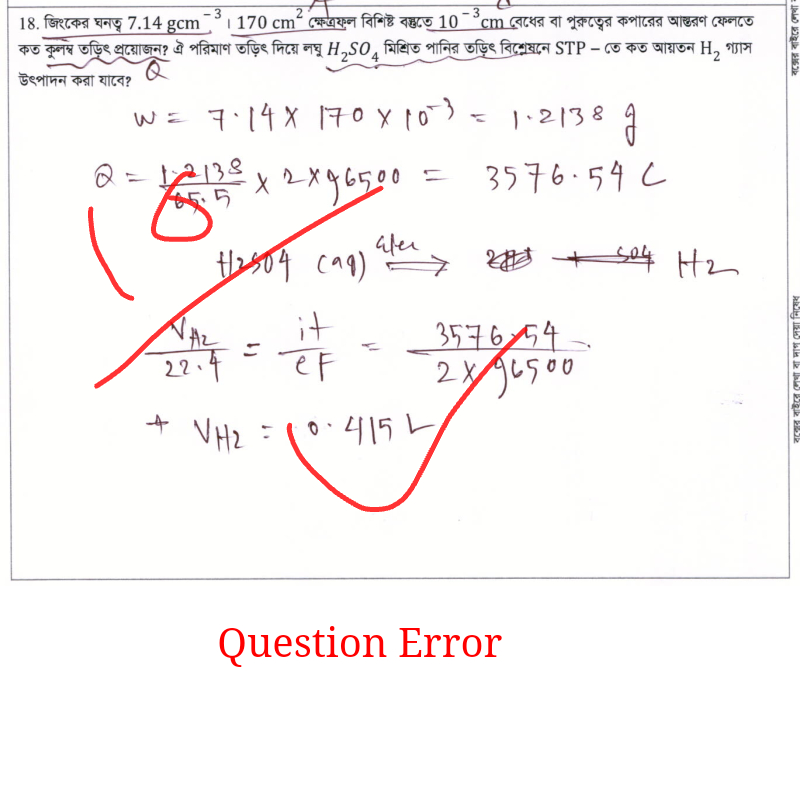 18. জিংকের ঘনত্ব 7.14 gcm⁻³ । 170 cm² ক্ষেত্রফল বিশিষ্ট বস্তুতে 10⁻³cm বেধের বা পুরুত্বের কপারের আস্তরণ ফেলতে
কত কুলম্ব তড়িৎ প্রয়োজন? ঐ পরিমাণ তড়িৎ দিয়ে লঘু H₂SO₄ মিশ্রিত পানির তড়িৎ বিশ্লেষনে STP – তে কত আয়তন H₂ গ্যাস
উৎপাদন করা যাবে? Q
W = 7.14 × 170 × 10⁻³ = 1.2138 g
Q = 1.2138/65.5 × 2×96500 = 3576.54 C
H2SO4 (aq) ⟶ H2
V_H2/22.4 = it/eF = 3576.54/2×96500
V_H2 = 0.415 L
Question Error
বক্সের বাইরে লেখা বা দাগ দেয়া নিষেধ